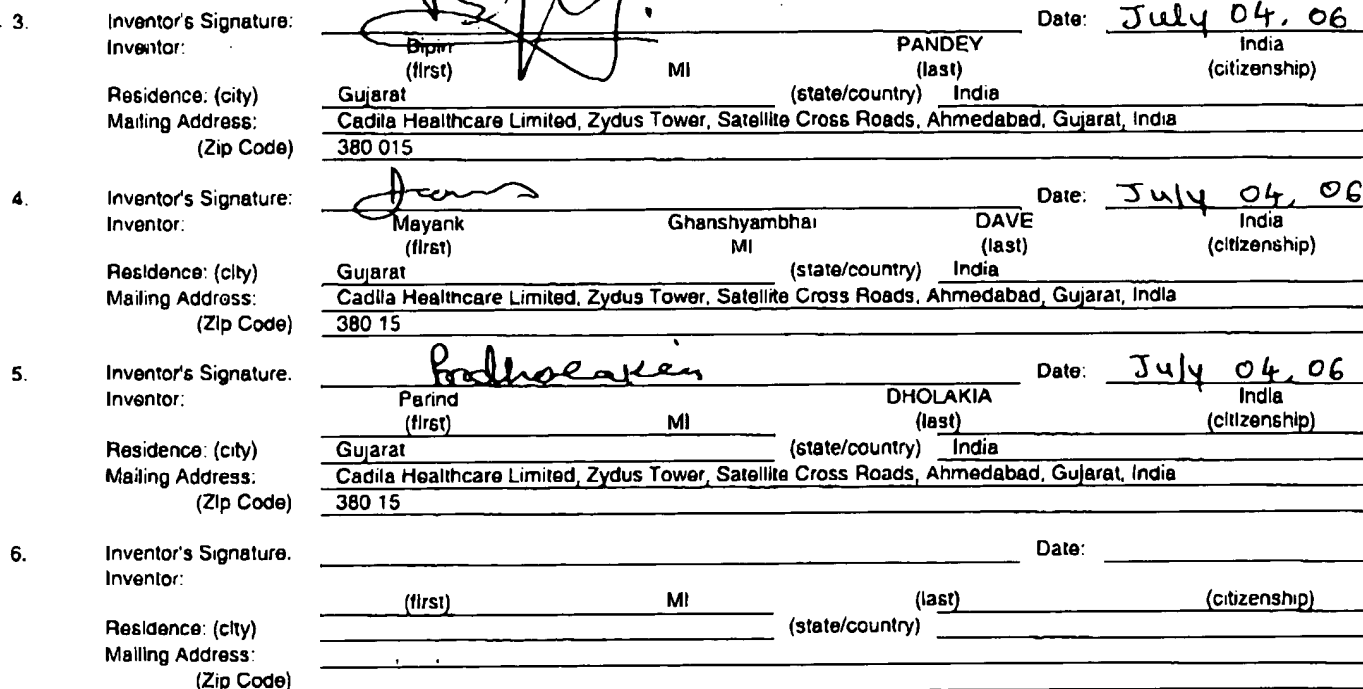 3. Inventor's Signature: Date: July 04. 06
Inventor: Bipin PANDEY India
(first) MI (last) (citizenship)
Residence: (city) Gujarat (state/country) India
Mailing Address: Cadila Healthcare Limited, Zydus Tower, Satellite Cross Roads, Ahmedabad, Gujarat, India
(Zip Code) 380 015
4. Inventor's Signature: Date: July 04, 06
Inventor: Mayank Ghanshyambhai DAVE India
(first) MI (last) (citizenship)
Residence: (city) Gujarat (state/country) India
Mailing Address: Cadila Healthcare Limited, Zydus Tower, Satellite Cross Roads, Ahmedabad, Gujarat, India
(Zip Code) 380 15
5. Inventor's Signature. Date: July 04, 06
Inventor: Parind DHOLAKIA India
(first) MI (last) (citizenship)
Residence: (city) Gujarat (state/country) India
Mailing Address: Cadila Healthcare Limited, Zydus Tower, Satellite Cross Roads, Ahmedabad, Gujarat, India
(Zip Code) 380 15
6. Inventor's Signature. Date:
Inventor:
(first) MI (last) (citizenship)
Residence: (city) (state/country)
Mailing Address:
(Zip Code)